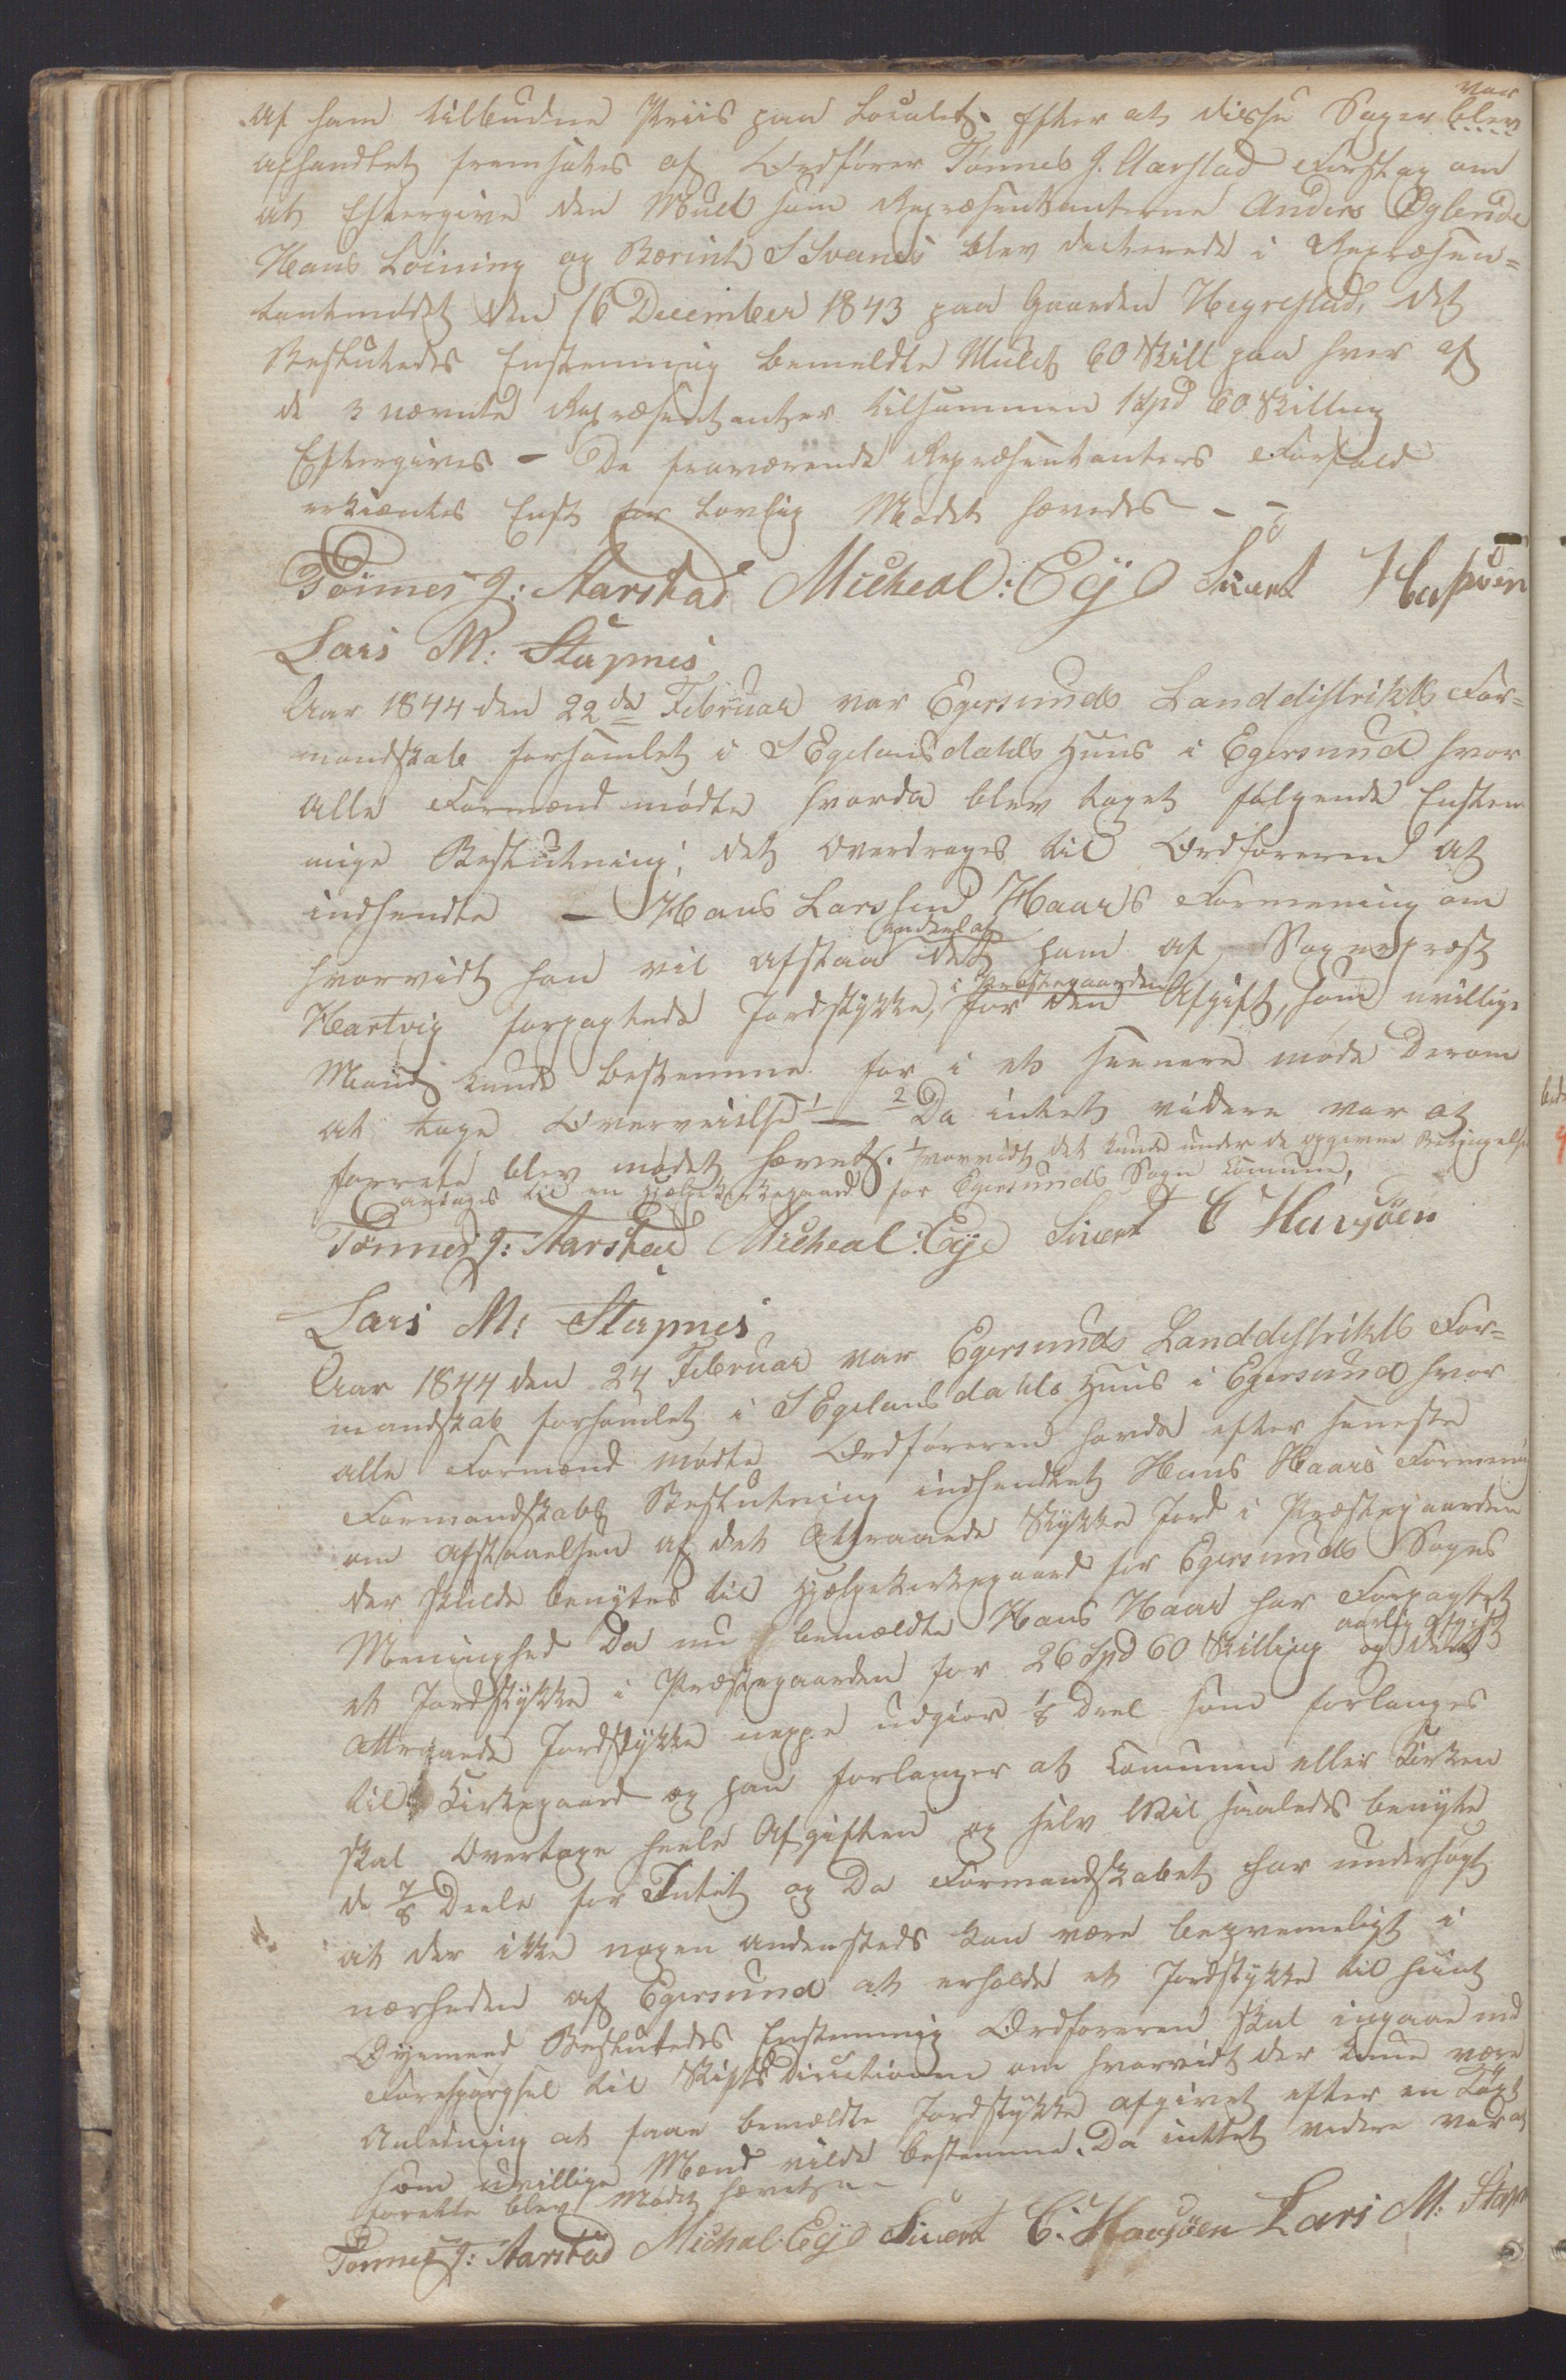 af ham tilbudne Priis paa Localet. Efter at disse Sager var blev
afhandlet fremsates af Ordfører Tønnes J. Aarstad Forslag om
at Eftergive den Mult som Repræsentanterne Anders Øglende
Hans Løining og Berint S Svanes blev dicterede i Repræsen=
tantmødet den 16 December 1843 paa Gaarden Hegrestad, det
Beslutedes Enstemmig bemeldte Mulct 60 Skill paa hver af
de 3 nævnte Repræsentanter tilsammen 1 Spd 60 Skilling
Eftergives – De fraværende Repræsentanters Forfald
erkiæntes Enst for Lovlig Mødet hævedes – –
Tönnes J: Aarstad Micheal: Eÿe Sivert Hafsöen
Lars M: Stapnes
Aar 1844 den 22de Februar var Egersunds Landdistrikts For=
mandskab forsamlet i S Egelansdahls Huus i Egersund hvor
alle Formænd mødte hvorda blev taget følgende Enstem
mige Beslutning; det Overdrages til Ordføreren at
indhendte – Hans Larssen Haars Formening om
hvorvidt han vil afstaa andeel af det ham af Sognepræst
Hartvig forpagtede Jordstykke, i Præstegaarden for den Afgift, som uvillige
Mænd kunde bestemme for i et seenere møde derom
at tage Overveielse 1 – 2 Da intet videre var at
forrete blev mødet hævet. 1 hvorvidt det kunde under de opgivne Betingelse
antages til en Hjælpekirkegaard for Egersunds Sogn Comune,
Tönnes J: Aarstad Micheal: Eÿe Sivert C Havsöen
Lars M: Stapnes
Aar 1844 den 24 Februar var Egersunds Landdistrikts For=
mandskab forsamlet i S Egelansdahls Huus i Egersund hvor
alle Formænd mødte Ordføreren havde efter seneste
Formandskabs Beslutning indhendtet Hans Haars Formening
om afstaaelsen af det Attraaede Stykke Jord i Præstegaarden
der skulde benyttes til Hjelpekirkegaard for Egersunds Sogns
Meninghed Da nu bemældte Hans Haar har Forpagtet
et Jordstykke i Præstegaarden for 26 Spd 60 Skilling aarlig Afgift og dette
attraaede Jordstykke neppe udgiør 1/8 Deel som forlanges
til Kirkegaard og han forlanger at Comunen eller Kirken
skal Overtage heele Afgiften og selv Vil saaledes benytte
de 7/8 Deele for Intet og Da Formandskabet har undersøgt
at der ikke nogen andensteds kan være beqvemeligt i
nærheden af Egersund at erholde et Jordstykke til hiint
Øyemeed Besluttedes Enstemmig Ordføreren skal ingaae med
Forespørgsel til Stiftsdirectionen om hvorvidt der kune være
Anledning at faae bemældte Jordstykke afgivet efter en Taxt
som uvillige Mænd vilde bestemme. Da inttet videre var at
forrette blev Mødet hævet –
Tönnes J: Aarstad Micheal: Eÿe Sivert C. Havsöen Lars M: Stapn